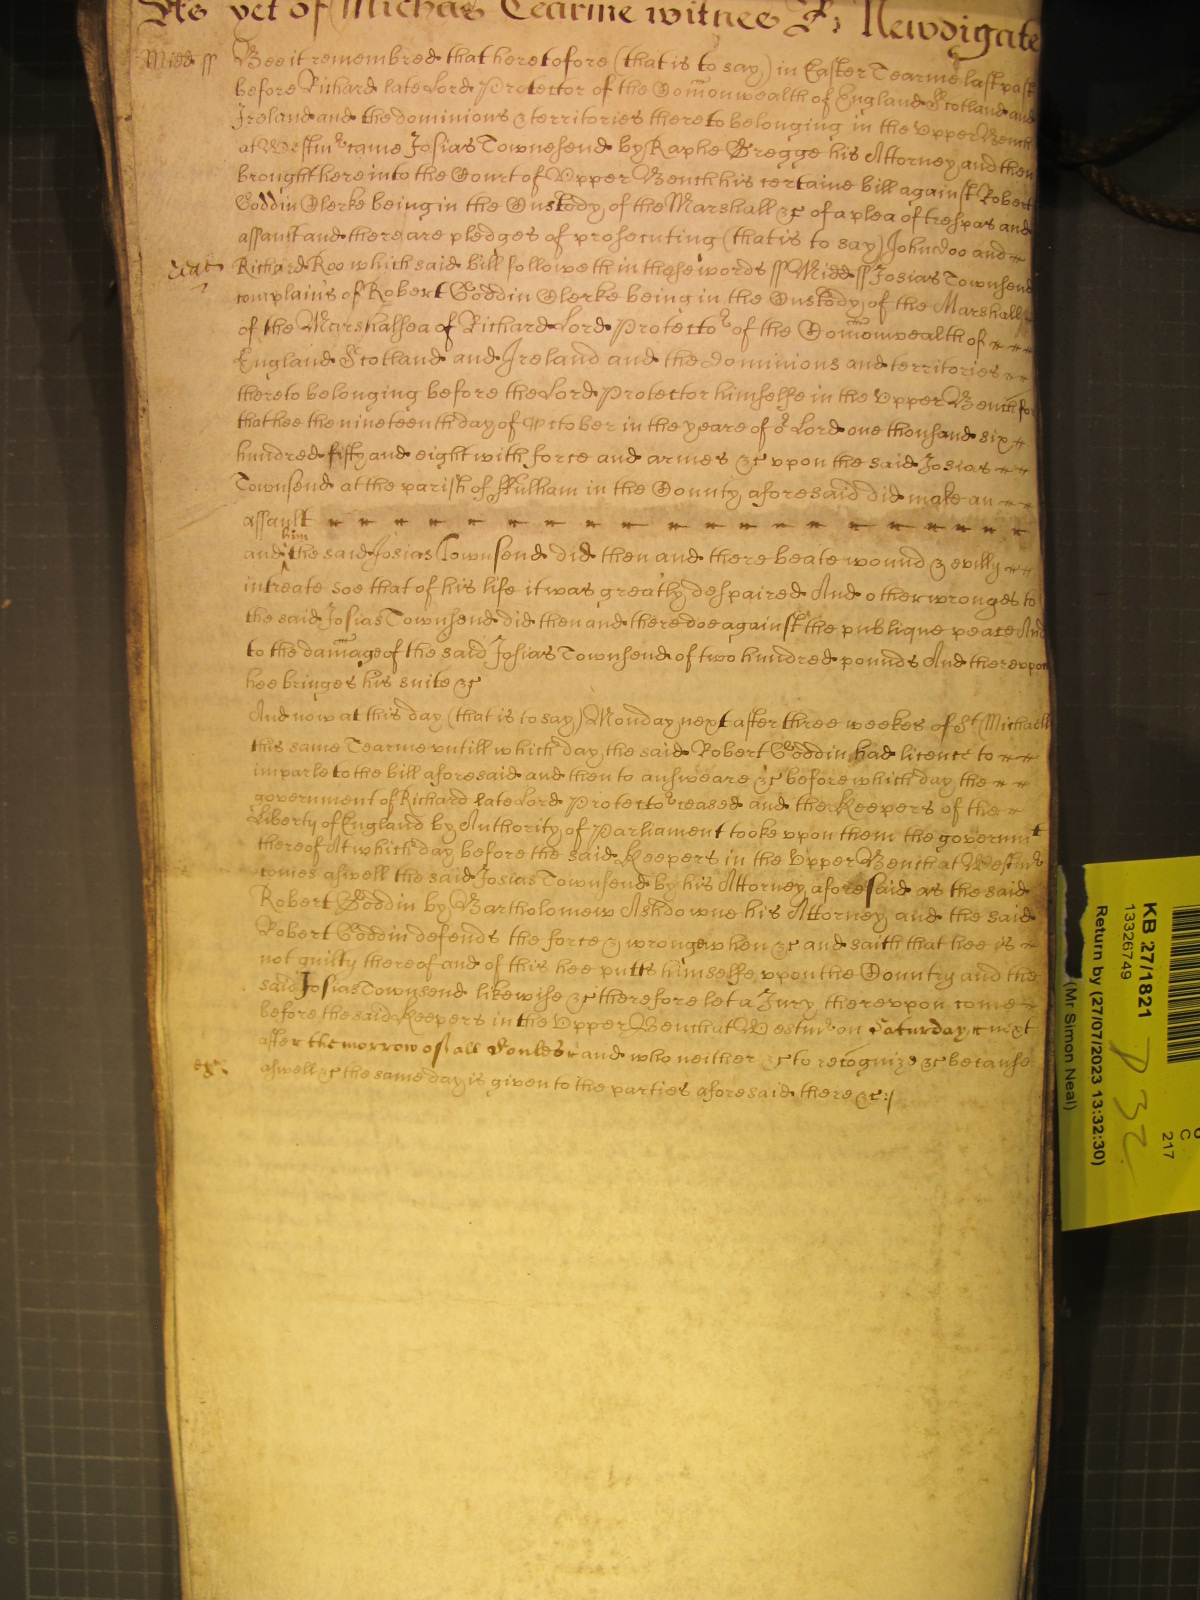 As yet of Michās Tearme witnes R: Newdigate
Midd ss Bee it remembred that heretofore (that is to say) in Easter Tearme last past
before Richard late Lord Protector of the Com̄onwealth of England Scotland and
Ireland and the dominions & territories thereto belonging in the Vpper Bench
at Westmr came Josias Townesend by Raphe Bregge his Attorney and then
brought here into the Court of Vpper Bench his certaine bill against Robert
Goddin Clerke being in the Custody of the Marshall &c of a plea of trespas and
assault and there are pledges of prosecuting (that is to say) John Doo and
Richard Roo which said bill followeth in these words ss Midd ss Josias Townsend
complains of Robert Goddin Clerke being in the Custody of the Marshall
of the Marshalsea of Richard Lord Protector of the Com̄onwealth of
England Scotland and Ireland and the dominions and territories
thereto belonging before the Lord Protector himselfe in the Vpper Bench for
that hee the nineteenth day of October in the yeare of or Lord one thousand six
hundred fifty and eight with force and armes &c vpon the said Josias
Townsend at the parish of ffulham in the County aforesaid did make an
assault
and him the said Josias Townsend did then and there beate wound & evilly
intreate soe that of his life it was greatly despaired And other wronges to
the said Josias Townsend did then and there doe against the publique peace And
to the dam̄age of the said Josias Townsend of two hundred pounds And therevpon
hee bringes his suite &c
And now at this day (that is to say) Monday next after three weekes of St Michaell
this same Tearme vntill which day the said Robert Goddin had licence to
imparle to the bill aforesaid and then to answeare &c before which day the
government of Richard late Lord Protector ceased and the Keepers of the
Liberty of England by Authority of Parliament tooke vpon them the governmt
thereof At which day before the said Keepers in the Vpper Bench at Westmr
comes aswell the said Josias Townsend by his Attorney aforesaid as the said
Robert Goddin by Bartholomew Ashdowne his Attorney and the said
Robert Goddin defends the force & wronge when &c and saith that hee is
not guilty thereof and of this hee putts himselfe vpon the Country and the
said Josias Townsend likewise &c therefore let a Jury therevpon come
before the said Keepers in the Vpper Bench at Westmr on Saturday next
after the morrow of all Soules and who neither &c to recognize &c because
aswell &c the same day is given to the parties aforesaid there &c:/
KB 27/1821
13326749
Return by (27/07/2023 13:32:30)
(Mr Simon Neal)
P 32
C
217